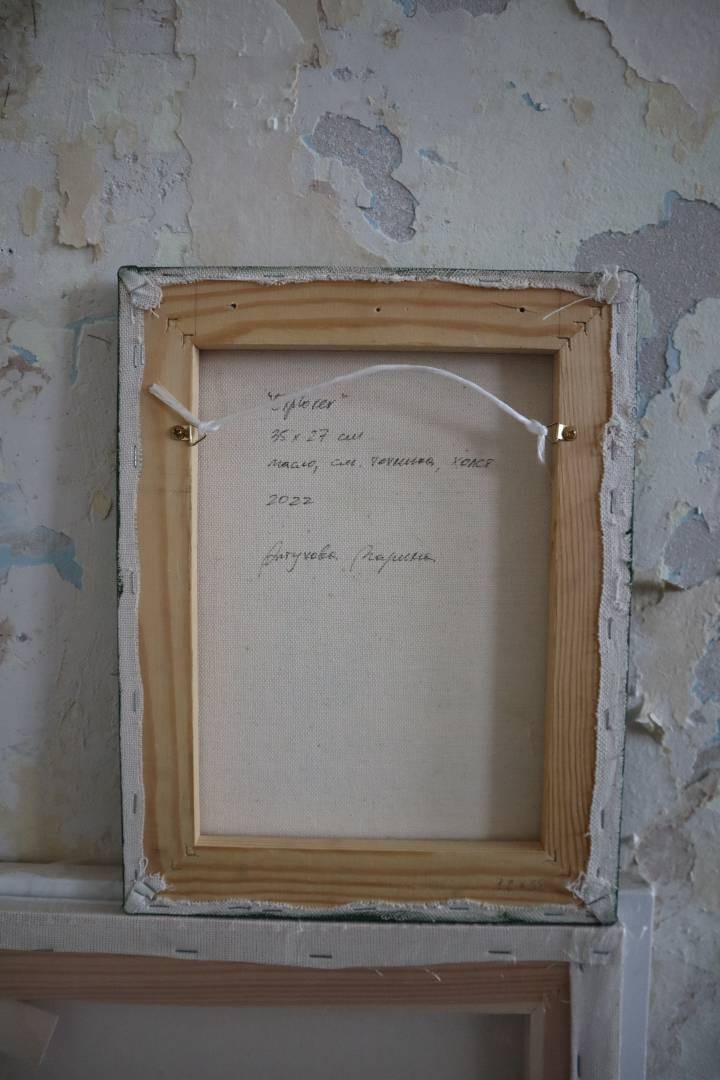 35 x 27 см
масло, см. техника, холст
2022
Алтухова Марина